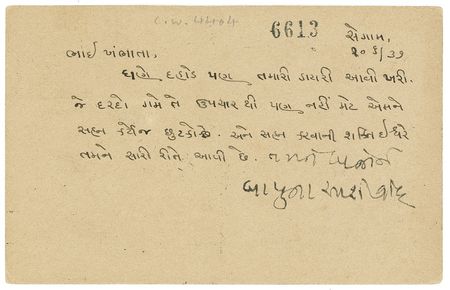 C.W. 4404
6613
સેગામ,
૨૦ ૬/૩૭
ભાઈ ખંભાતા,
ઘણે દહાડે પણ તમારી ડાયરી આવી ખરી.
જે દરદો ગમે તે ઉપચારથી પણ નહીં મટે એમને
સહન કર્યેજ છુટકોછે. અને સહન કરવાની શક્તિ ઈશ્વરે
તમને સારી રીતે આપી છે. તમને બન્નેને
બાપુના આશીર્વાદ